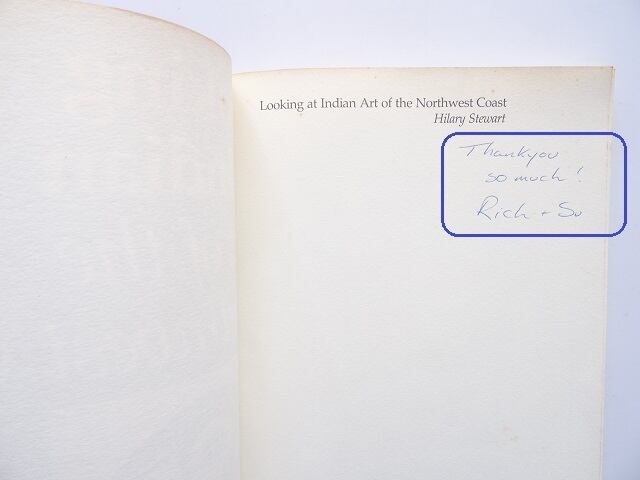 Looking at Indian Art of the Northwest Coast
Hilary Stewart
Thankyou
so much!
Rich + Su